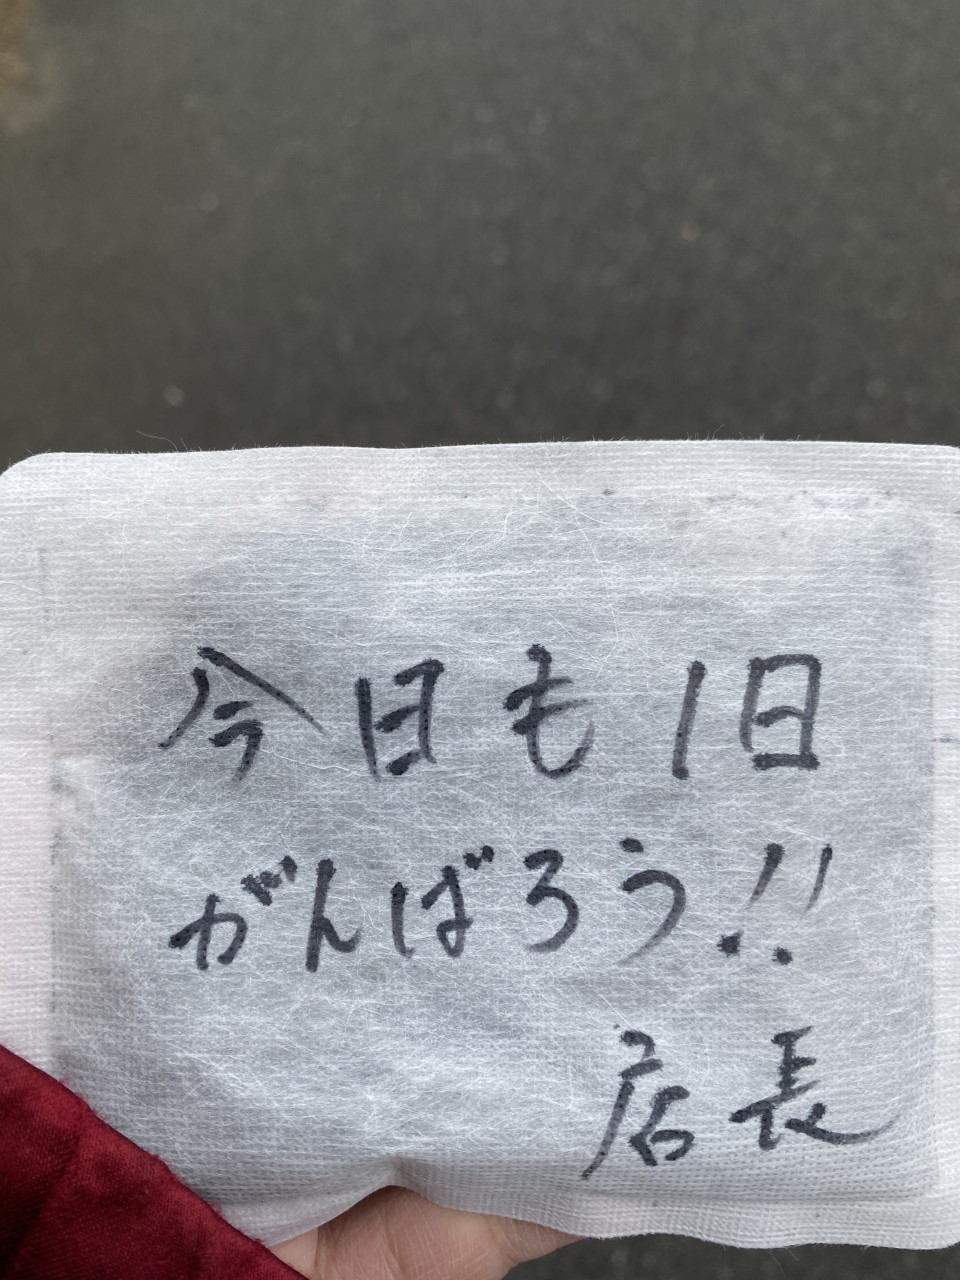 今日も1日
がんばろう!!
店長